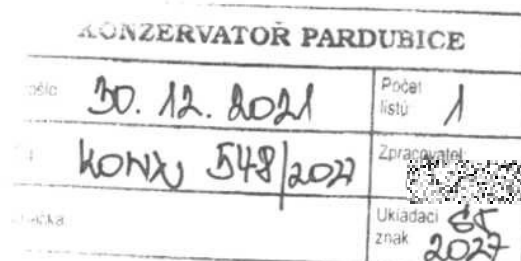 KONZERVATOŘ PARDUBICE
30. 12. 2021
Počet listů 1
548/202
Zpracovatel:
Ukládací znak
2027